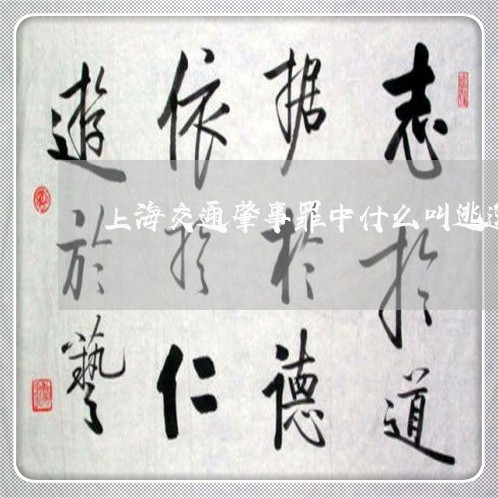 志於道
据於德
依於仁
遊於藝
上海交通肇事罪中什么叫逃